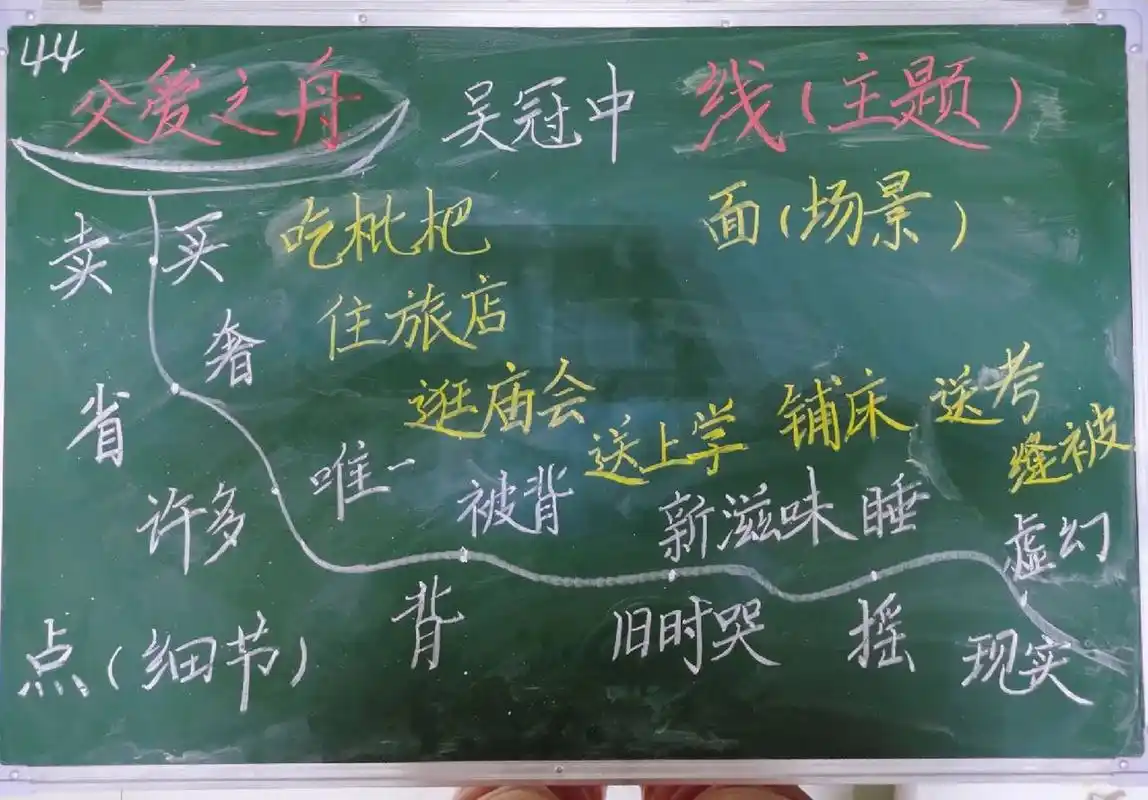 44
父爱之舟 吴冠中 线(主题)
卖 买 吃枇杷 面(场景)
奢 住旅店
省 逛庙会 送上学 铺床 送考
缝被
许多 唯一 被背 新滋味 睡 虚幻
背 旧时哭 摇 现实
点(细节)